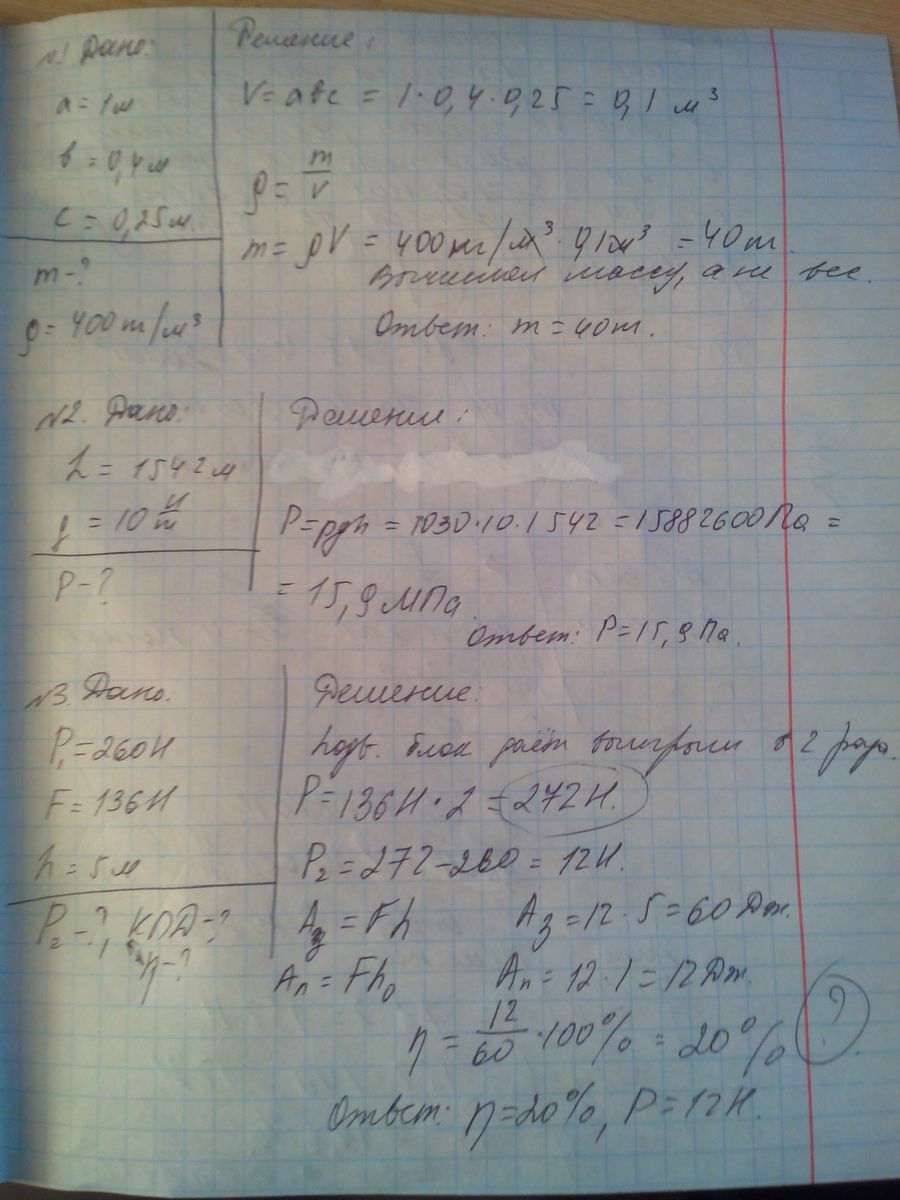 №1 Дано:
a = 1м
в = 0,4м
c = 0,25м.
m - ?
ρ = 400 т/м³
Решение:
V = aвc = 1·0,4·0,25 = 0,1 м³
ρ = m/V
m = ρV = 400 кг/м³ · 0,1м³ = 40т.
Вычислил массу, а не вес.
Ответ: m = 40т.
№2. Дано:
h = 1542 м
g = 10 Н/т
P - ?
Решение:
P = ρgh = 1030·10·1542 = 15882600 Па =
= 15,9 МПа
Ответ: P = 15,9 Па.
№3. Дано:
P₁ = 260Н
F = 136Н
h = 5м
P₂ - ?, КПД - ?
η - ?
Решение:
подв. блок даёт выигрыш в 2 раза.
P = 136Н · 2 = 272Н.
P₂ = 272 - 260 = 12Н.
Aз = Fh Aз = 12·5 = 60 Дж.
Aп = Fh₀ Aп = 12·1 = 12 Дж.
η = 12/60 · 100% = 20% ?
Ответ: η = 20%, P = 12Н.